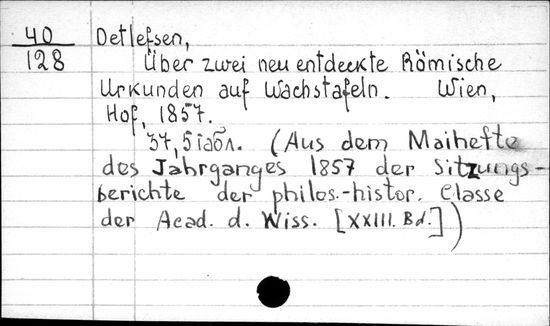 40
128
Detlefsen,
Über zwei neu entdeckte Römische
Urkunden auf Wachstafeln. Wien,
Hof, 1857.
37, 5 табл. (Aus dem Maihefte
des Jahrganges 1857 der Sitzungs-
berichte der philos.-histor. Classe
der Acad. d. Wiss. [XXIII. Bd.])